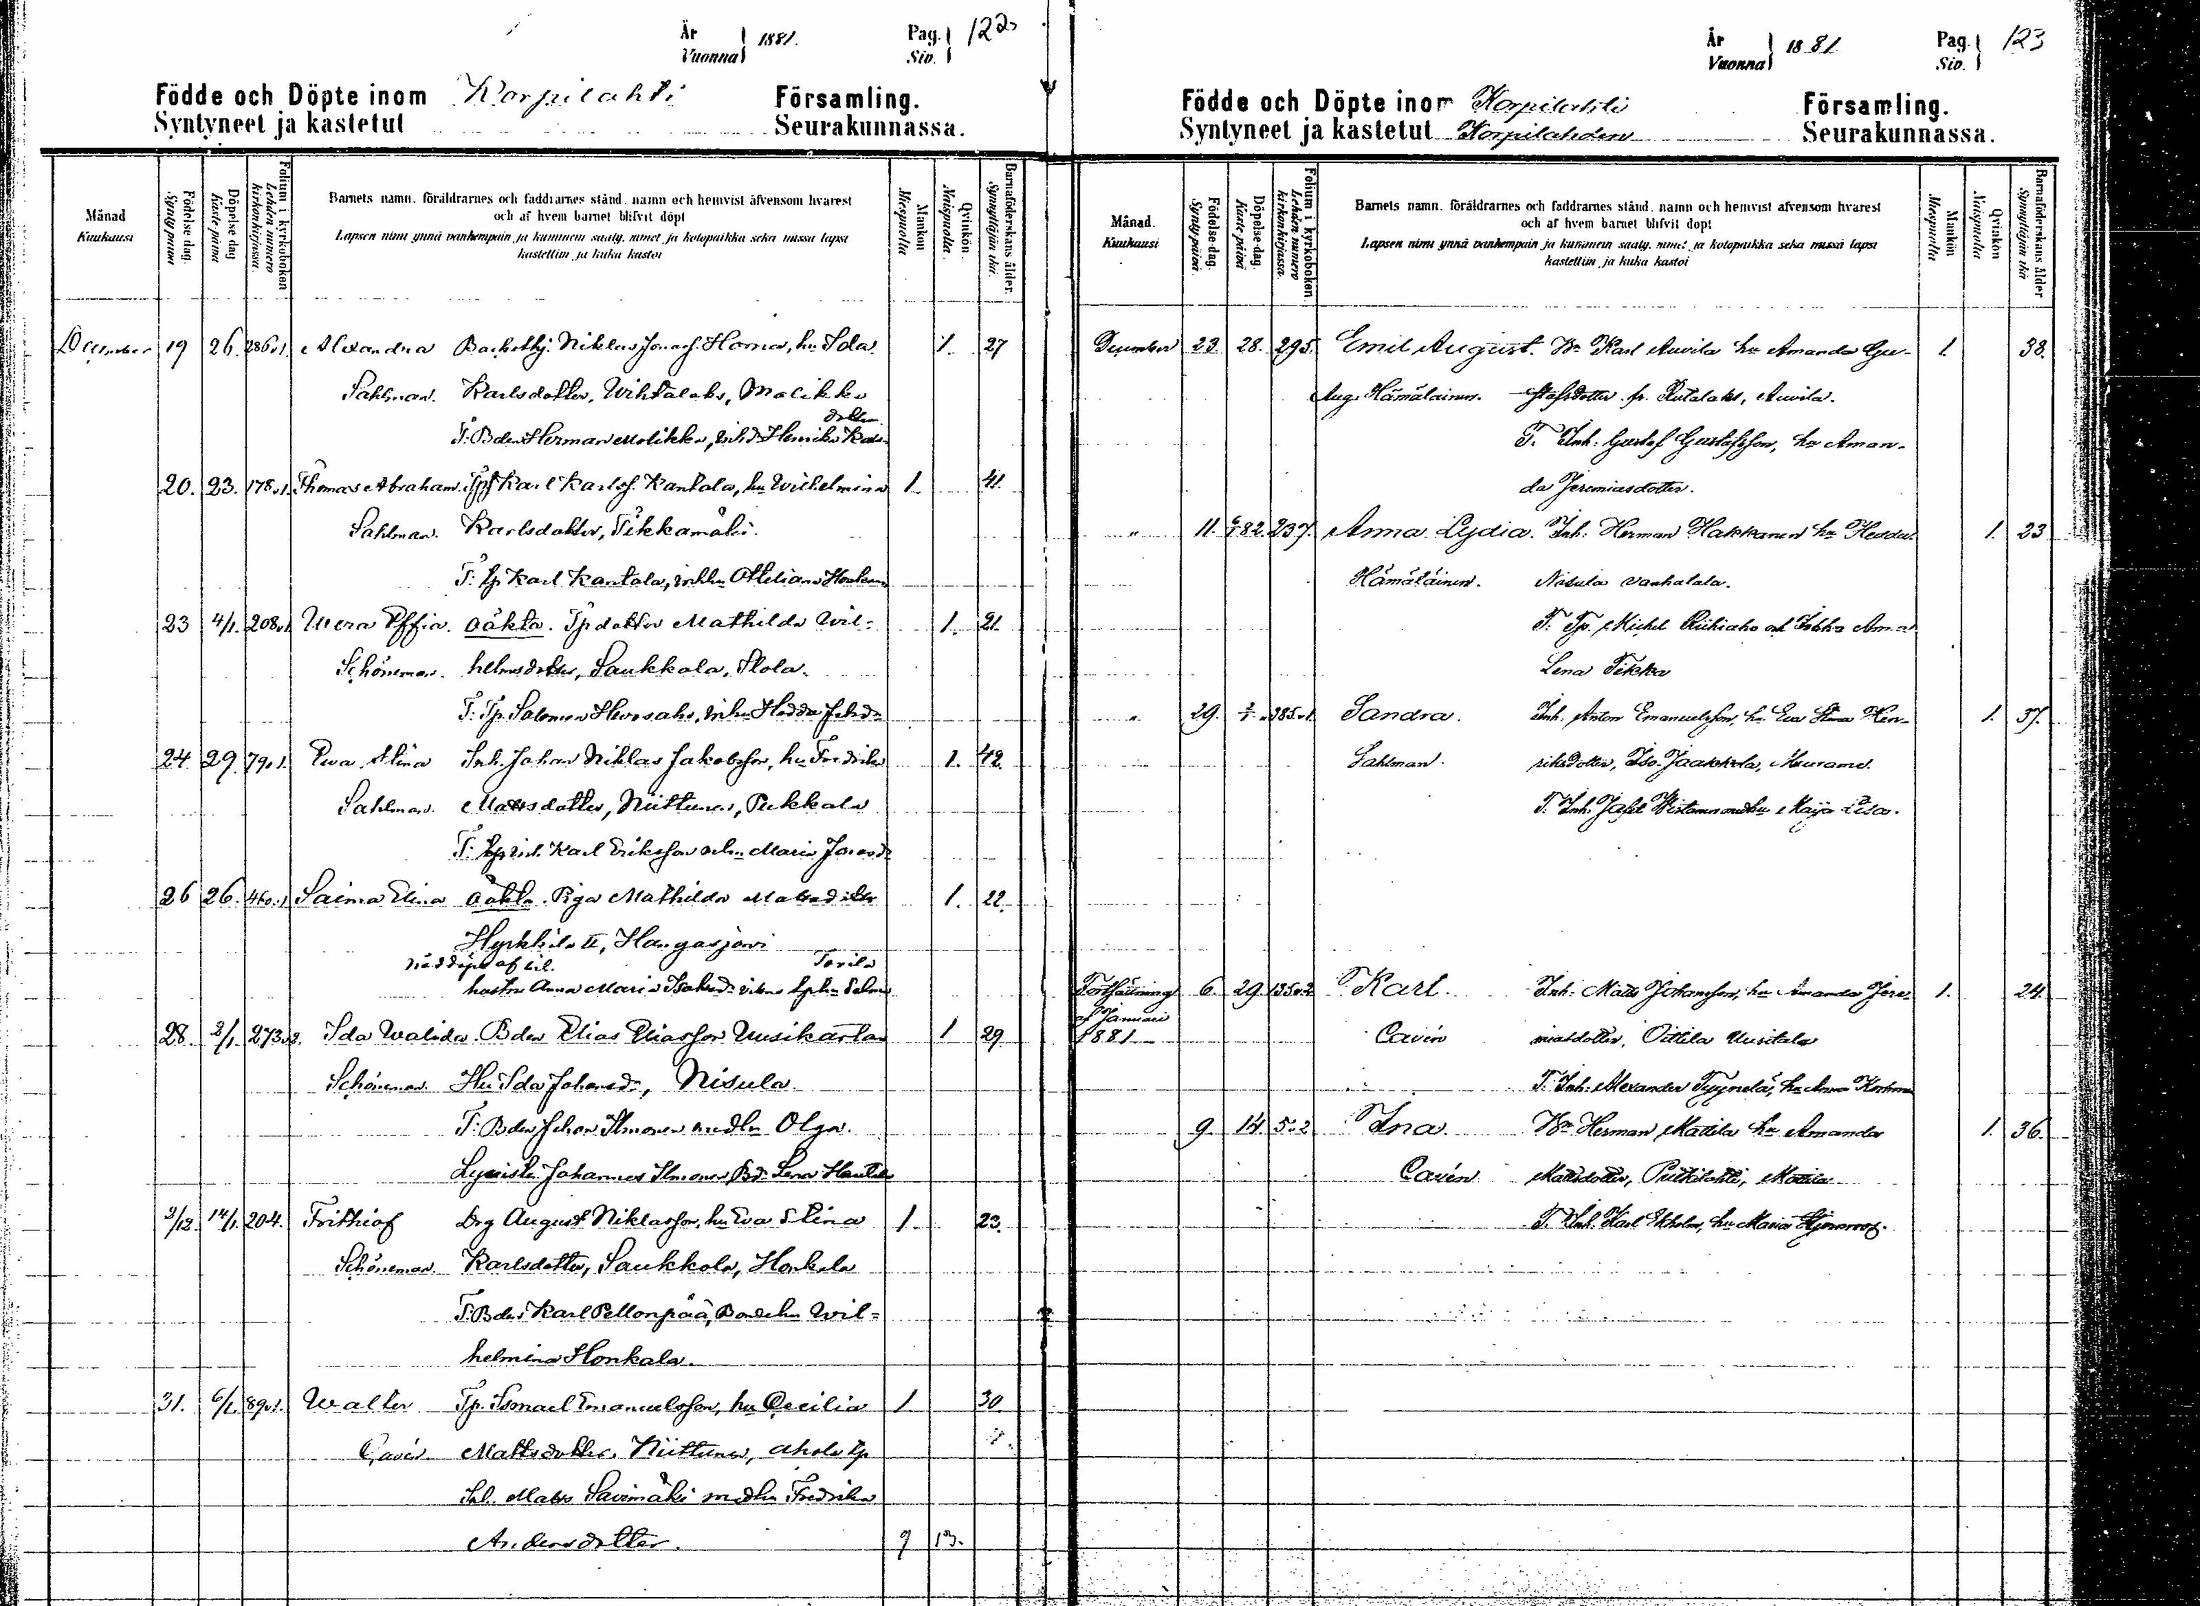 År
Vuonna
1881.
Pag.
Siv.
122
Födde och Döpte inom Korpilahti Församling.
Syntyneet ja kastetut Seurakunnassa.
Månad
Kuukausi
Födelse dag.
Synty päivä
Döpelse dag
Kaste päivä
Folium i kyrkoboken
Lehden numero kirkonkirjassa
Barnets namn, föräldrarnes och faddrarnes stånd, namn och hemvist äfvensom hvarest
och af hvem barnet blifvit döpt
Lapsen nimi ynnä vanhempain ja kummein sääty, nimet ja kotopaikka sekä missä lapsi
kastettiin ja kuka kastoi
Mankön
Miespuolia
Qvinkön.
Naispuolia.
Barnaföderskans ålder.
Synnyttäjän ikä.
December 19 26. 286.v.1. Alexandra Niklas Homa, hu Ida 1. 27
Sahlman. Karlsdotter, Wihtalaks, Molikka
dotter
F: Bden Herman Molikka, Henrika Karls-
20. 23. 178.v.1. Thomas Abraham. Karl Karlss. Kantala, hu Wilhelmina 1. 41.
Sahlman. Karlsdotter, Tikkamäki.
F: Tp Karl Kantala,
23 4/1. 208.v.1 Wera Effia. oäkta. Tpdotter Mathilda Wil- 1. 21.
Schöneman. helmsdotter, Saukkola, Skola.
F: Tp. Salomon
24. 29. 79.v.1. Ewa Stina Inh. Johan Niklas Jakobsson, hu Fredrika 1. 42.
Sahlman. Mattsdotter, Niittunen, Pukkala
F: Karl Eriksson Maria
26 26. 460.v.1 Saima Elina oäkta. Piga Mathilda Mattsdotter 1. 22.
Hyrkkilä II, Hangasjärvi
nöddöpt af
hustru Anna Maria
28. 2/1. 273.v.2. Ida Walida. Bden Elias Eliasson Uusikartano 1 29
Schöneman. Hu Ida Johansd:, Nisula.
F: Bden Johan Ilmonen medhu Olga.
Johannes Ilmonen Bd: Lena
3/12. 14/1. 204. Frithiof Drg August Niklasson, hu Eva Stina 1. 23.
Schöneman. Karlsdotter, Saukkola, Honkala
F: Bden Karl Pellonpää, Wil-
helmina Honkala.
31. 6/1. 89.v.1. Walter Tp. Ismael Emanuelsson, hu Cecilia 1 30
Cavén. Mattsdotter. Niittunen, Ahola tp
Inh. Matts Savimäki medhu Fredrika
Andersdotter. 9 13.
År
Vuonna
1881.
Pag.
Siv.
123
Födde och Döpte inom Korpilahti Församling.
Syntyneet ja kastetut Korpilahden Seurakunnassa.
Månad.
Kuukausi
Födelse dag.
Synty päivä.
Döpelse dag.
Kaste päivä
Folium i kyrkoboken.
Lehden numero kirkonkirjassa.
Barnets namn, föräldrarnes och faddrarnes stånd, namn och hemvist äfvensom hvarest
och af hvem barnet blifvit döpt
Lapsen nimi ynnä vanhempain ja kummein sääty, nimet ja kotopaikka sekä missä lapsi
kastettiin ja kuka kastoi
Mankön
Miespuolia
Qvinkön
Naispuolia
Barnaföderskans ålder
Synnyttäjän ikä
December 23. 28. 295. Emil August. Bn Karl Auvila hu Amanda Gu- 1. 38.
Aug. Hämäläinen. stafsdotter fr. Rutalaks, Auvila.
F. Inh: Gustaf Gustafsson, hu Aman-
da Jeremiasdotter.
" 11. 82. 237. Anna Lydia. Inh: Herman Hakkanen hu Hedda 1. 23
Hämäläinen. Nisula Vanhalala.
F: Tp. Michel Riihiaho och Anna
Lena Tikka
" 29. 385.v.1 Sandra. Inh. Anton Emanuelsson, hu Eva Stina Hen- 1. 37.
Sahlman. riksdotter, Iso-Jaakkola, Keurame.
F. Inh. Maija Lisa.
Fortsättning 6. 29. 135.v.2 Karl. Inh: Matts Johansson, hu Amanda Jere- 1. 24.
af Januari
1881 Cavén miasdotter, Oittila Uusitalo
F. Inh: Alexander Tyynelä, hu Anna
9. 14. 5.v.2 Ina. Bn Herman Mattila hu Amanda 1. 36.
Cavén Mattsdotter, Putkilahti, Mattila
F. Inh. Karl Ekholm, hu Maria